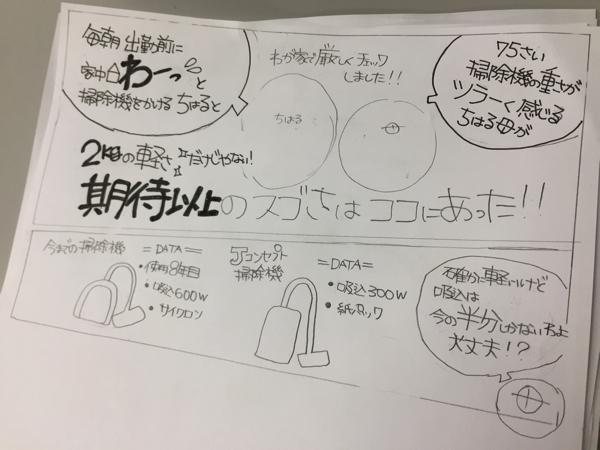 毎朝 出勤前に
家中白わーっと
掃除機をかける ちはると
わが家で厳しくチェック
しました!!
75さい
掃除機の重さが
ツラーく感じる
ちはる母が
ちはる
2kgの軽さ だけじゃない!
期待以上のスゴさはココにあった!!
今までの掃除機
=DATA=
•使用8年目
•吸込600W
•サイクロン
コンセプト
掃除機
=DATA=
•吸込300W
•紙パック
確かに軽いけど
吸込は
今の半分しかないわよ
大丈夫!?